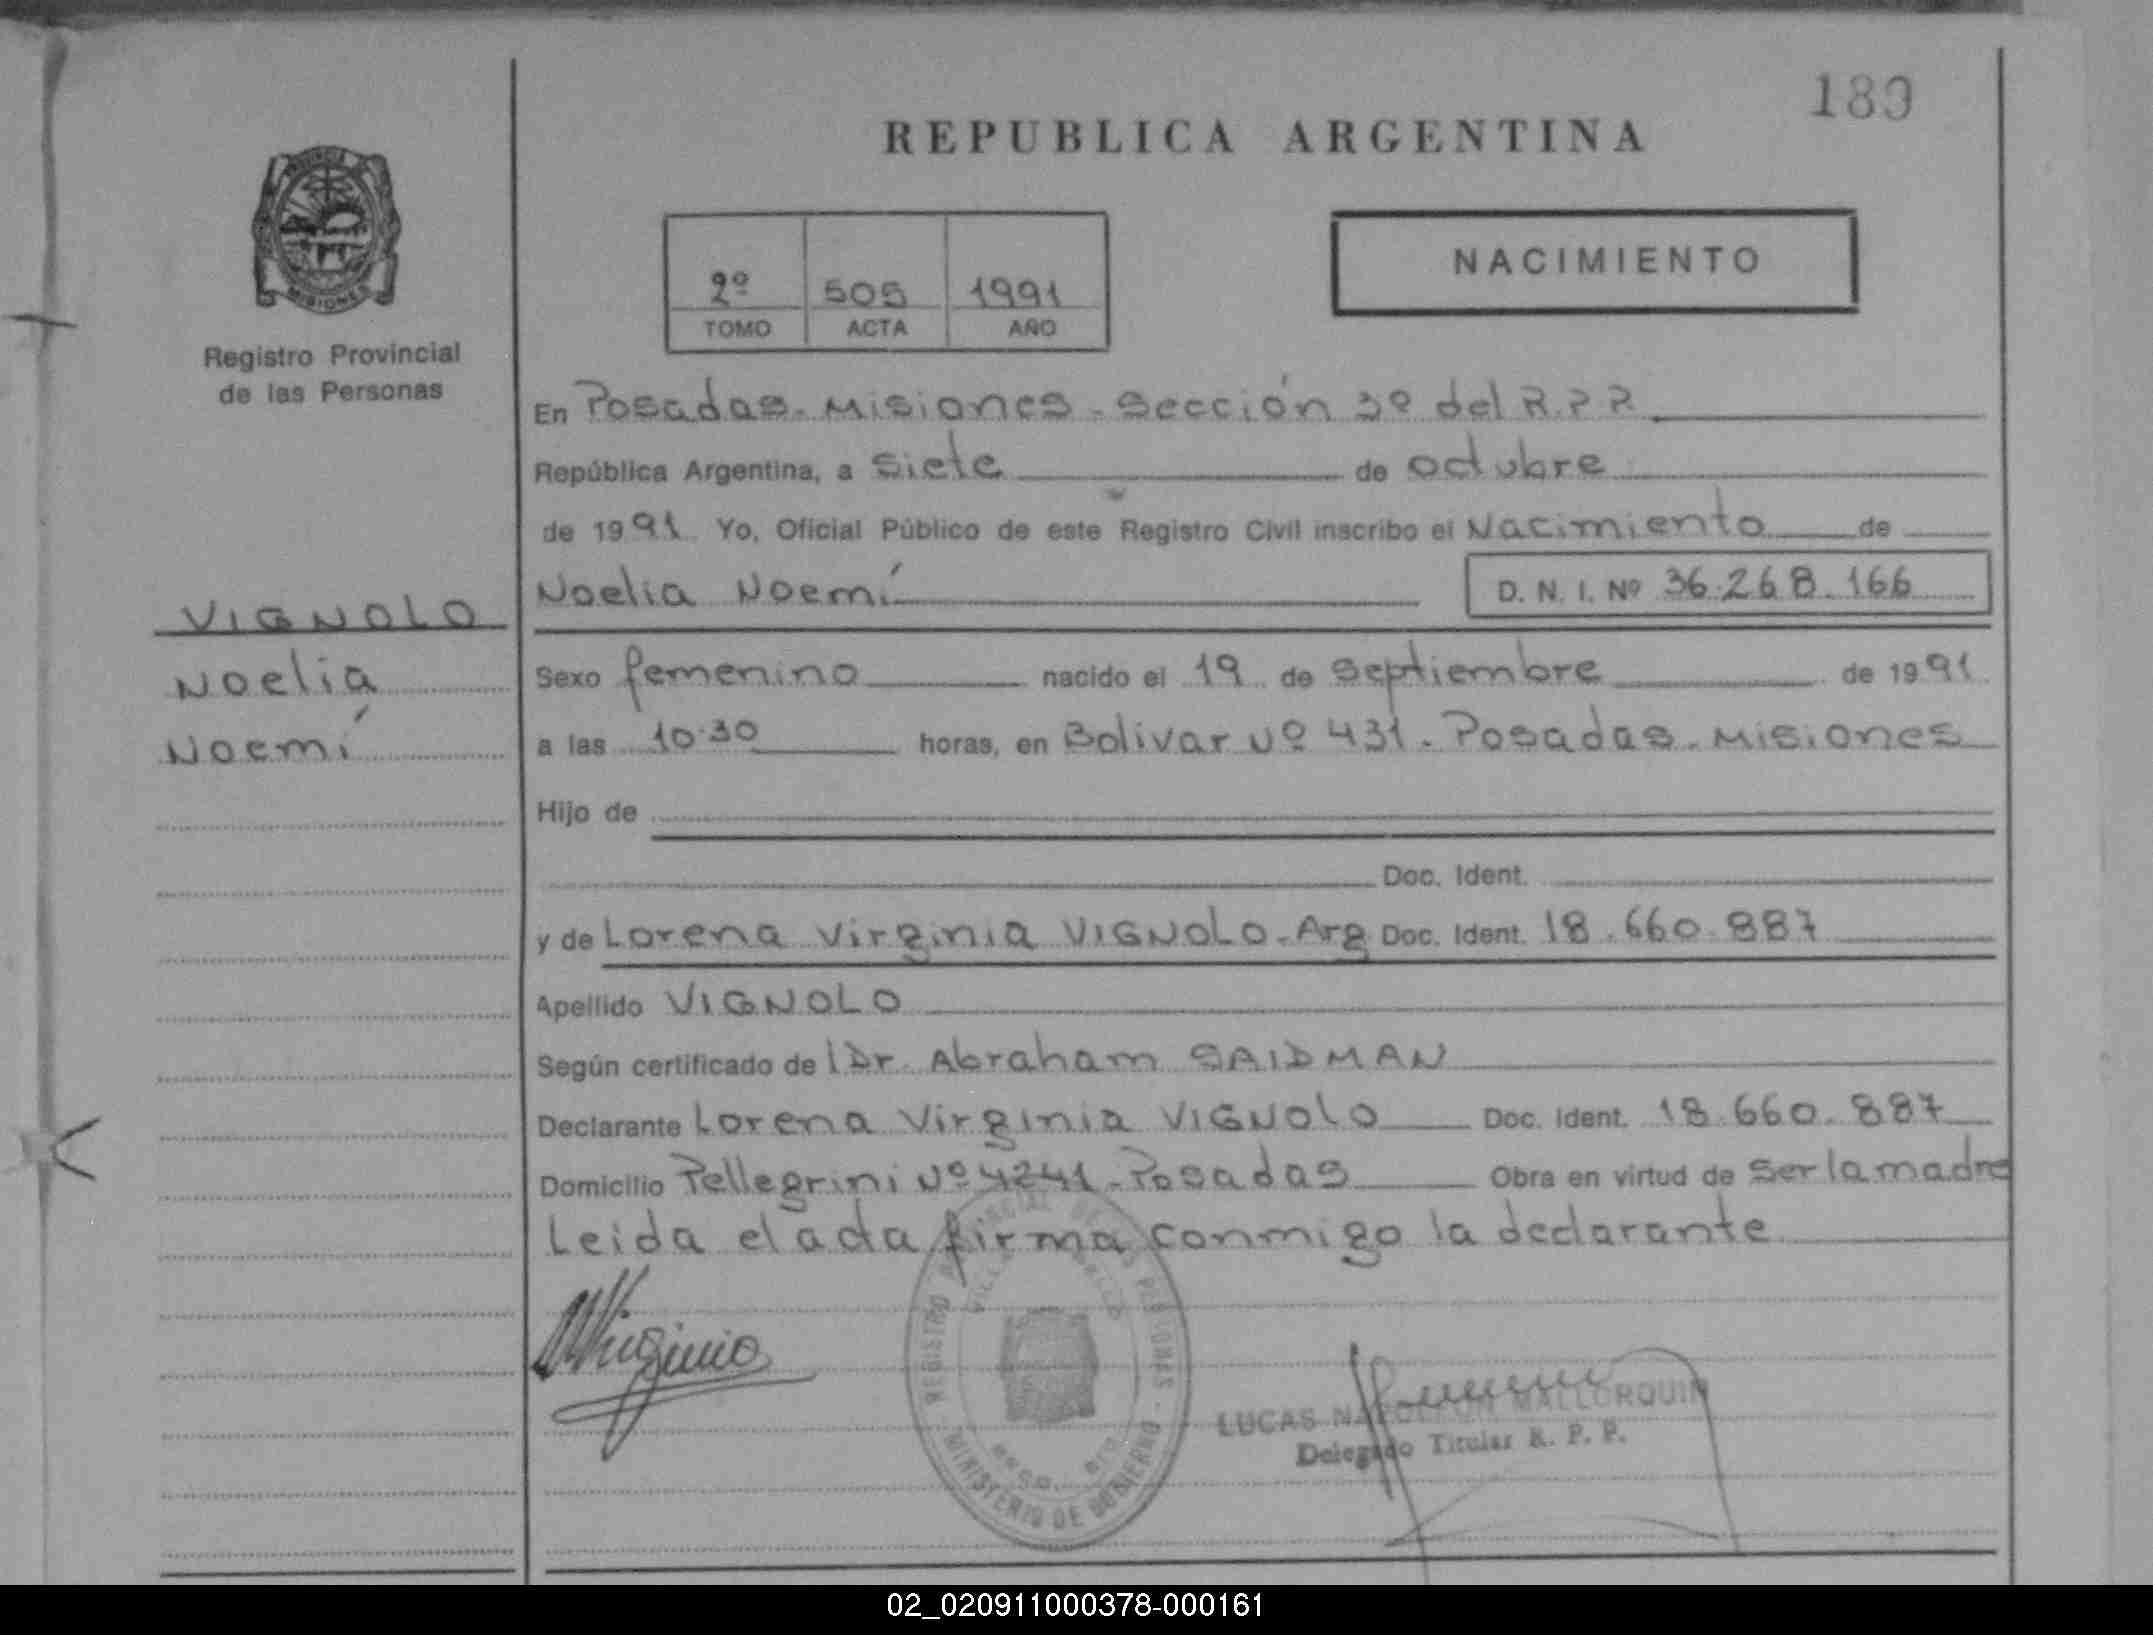 189
REPUBLICA ARGENTINA
PROVINCIA
MISIONES
Registro Provincial
de las Personas
2º 505 1991
TOMO ACTA AÑO
NACIMIENTO
En Posadas. Misiones. Sección 3º del R.P.P.
República Argentina, a siete de octubre
de 1991 Yo, Oficial Público de este Registro Civil inscribo el Nacimiento de
Noelia Noemí D. N. I. Nº 36.268.166
VIGNOLO
Noelia
Noemí
Sexo femenino nacido el 19 de septiembre de 1991
a las 10.30 horas, en Bolivar Nº 431. Posadas. Misiones
Hijo de
Doc. Ident.
y de Lorena Virginia VIGNOLO. Arg Doc. Ident. 18.660.887
Apellido VIGNOLO
Según certificado de l Dr. Abraham SAIDMAN
Declarante Lorena Virginia VIGNOLO Doc. Ident. 18.660.887
Domicilio Pellegrini Nº 4241. Posadas Obra en virtud de ser la madre
Leida el acta firma conmigo la declarante
Virginia
REGISTRO PROVINCIAL DE LAS PERSONAS
MINISTERIO DE GOBIERNO
LUCAS NAPOLEON MALLORQUIN
Delegado Titular R. P. P.
02_020911000378-000161